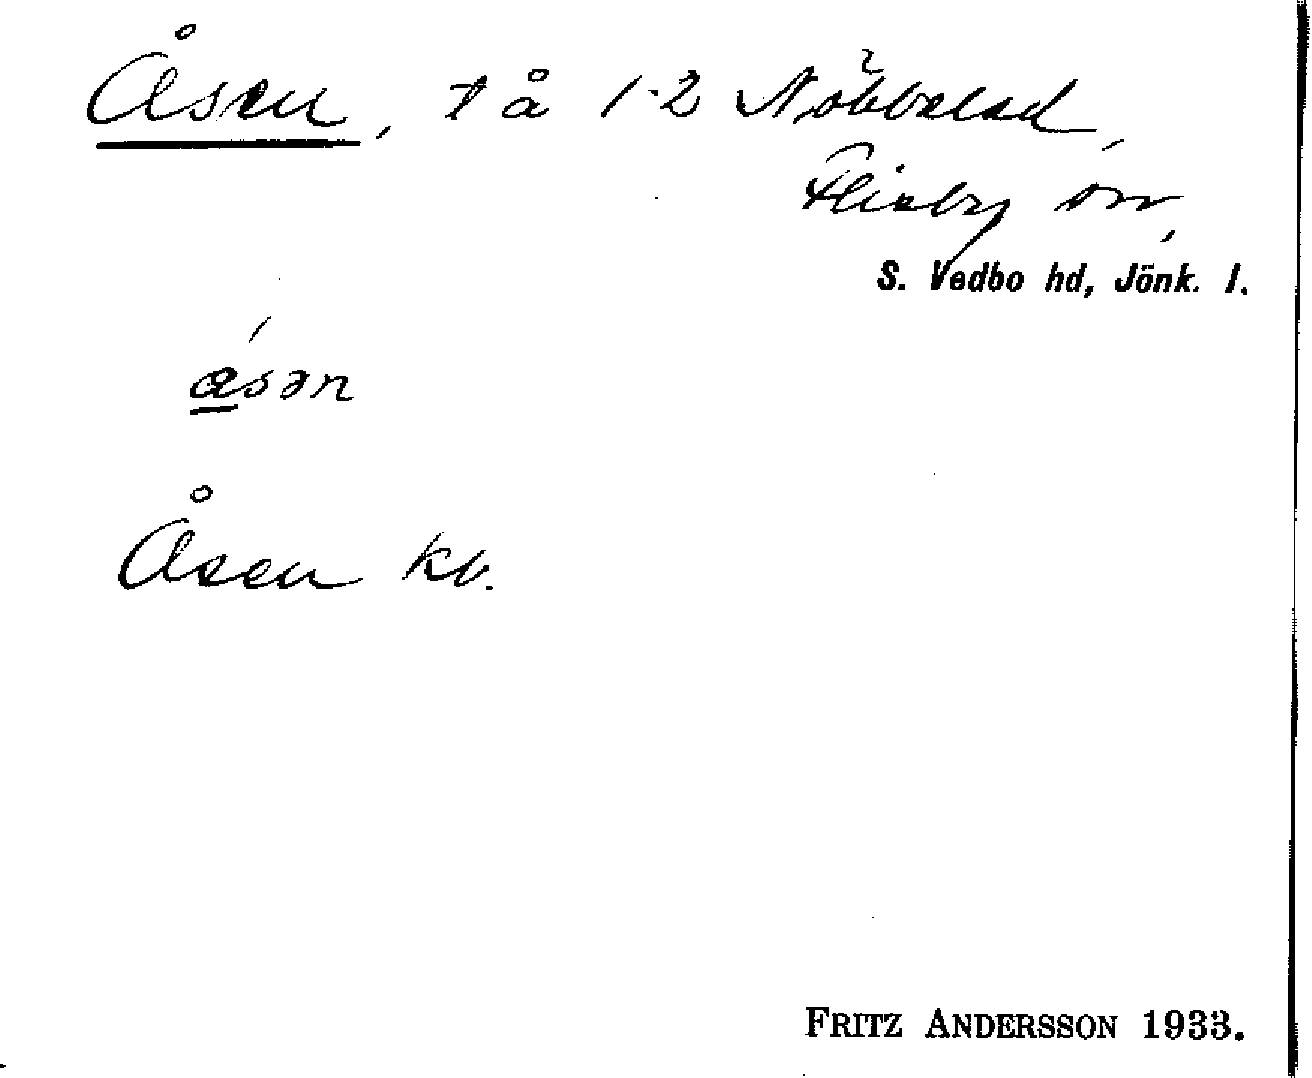 Åsen, t å 1-2 Nöbbelad,
Flisby sn,
S. Vedbo hd, Jönk. l.
åsən
Åsen kb.
FRITZ ANDERSSON 1933.